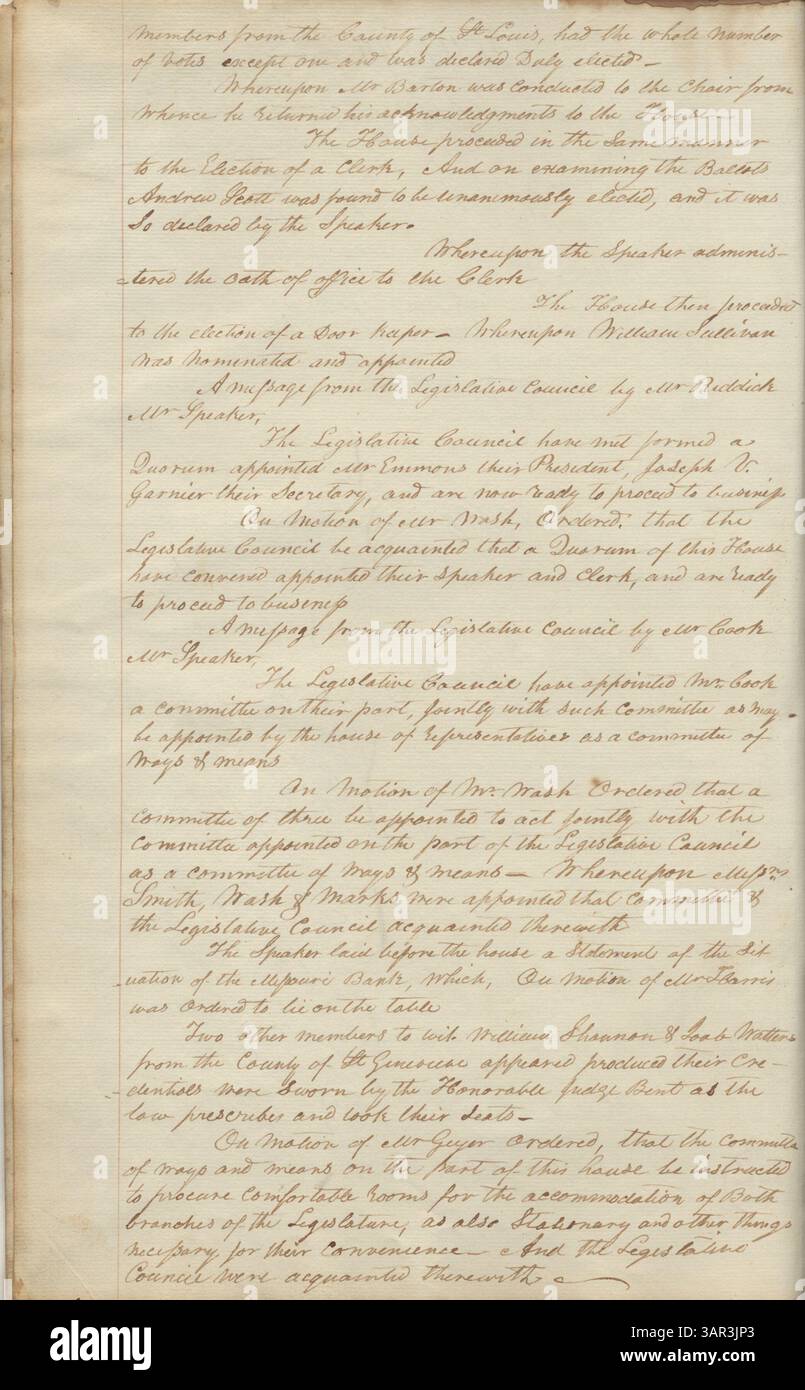 members from the County of St Louis, had the whole number
of votes except one and was declared Duly elected -
Whereupon Mr Barton was conducted to the Chair from
whence he returned his acknowledgments to the House -
The House proceeded in the same manner
to the Election of a Clerk, And on examining the Ballots
Andrew Scott was found to be unanimously elected, and it was
So declared by the Speaker.
Whereupon the Speaker adminis-
-tered the oath of office to the Clerk
The House then proceeded
to the election of a Door keeper - Whereupon William Sullivan
was nominated and appointed
A message from the Legislative Council by Mr Riddick
Mr Speaker,
The Legislative Council have met formed a
Quorum appointed Mr Emmons their President, Joseph V.
Garnier their Secretary, and are now ready to proceed to business
On Motion of Mr Wash, Ordered, that the
Legislative Council be acquainted that a Quorum of this House
have convened appointed their Speaker and Clerk, and are ready
to proceed to business
A message from the Legislative Council by Mr Cook
Mr Speaker,
The Legislative Council have appointed Mr. Cook
a committee on their part, Jointly with such Committee as may
be appointed by the house of representatives as a committee of
Ways & means
On Motion of Mr. Wash Ordered that a
committee of three be appointed to act Jointly with the
Committee appointed on the part of the Legislative Council
as a committee of Ways & means - Whereupon Messrs.
Smith, Wash & Marks were appointed that Committee &
the Legislative Council acquainted therewith
The Speaker laid before the house a Statement of the Sit
-uation of the Missouri Bank, which, On motion of Mr Harris
was ordered to lie on the table
Two other members to wit. William Shannon & Joab Watters
from the County of St Genevieve appeared produced their Cre-
-dentials were sworn by the Honorable Judge Bent as the
law prescribes and took their Seats -
On Motion of Mr Geyer ordered, that the committee
of ways and means on the part of this house be instructed
to procure comfortable rooms for the accommodation of Both
branches of the Legislature, as also Stationary and other things
necessary for their convenience - And the Legislative
Council were acquainted therewith
alamy
alamy
Image ID: 3AR3JP3
www.alamy.com